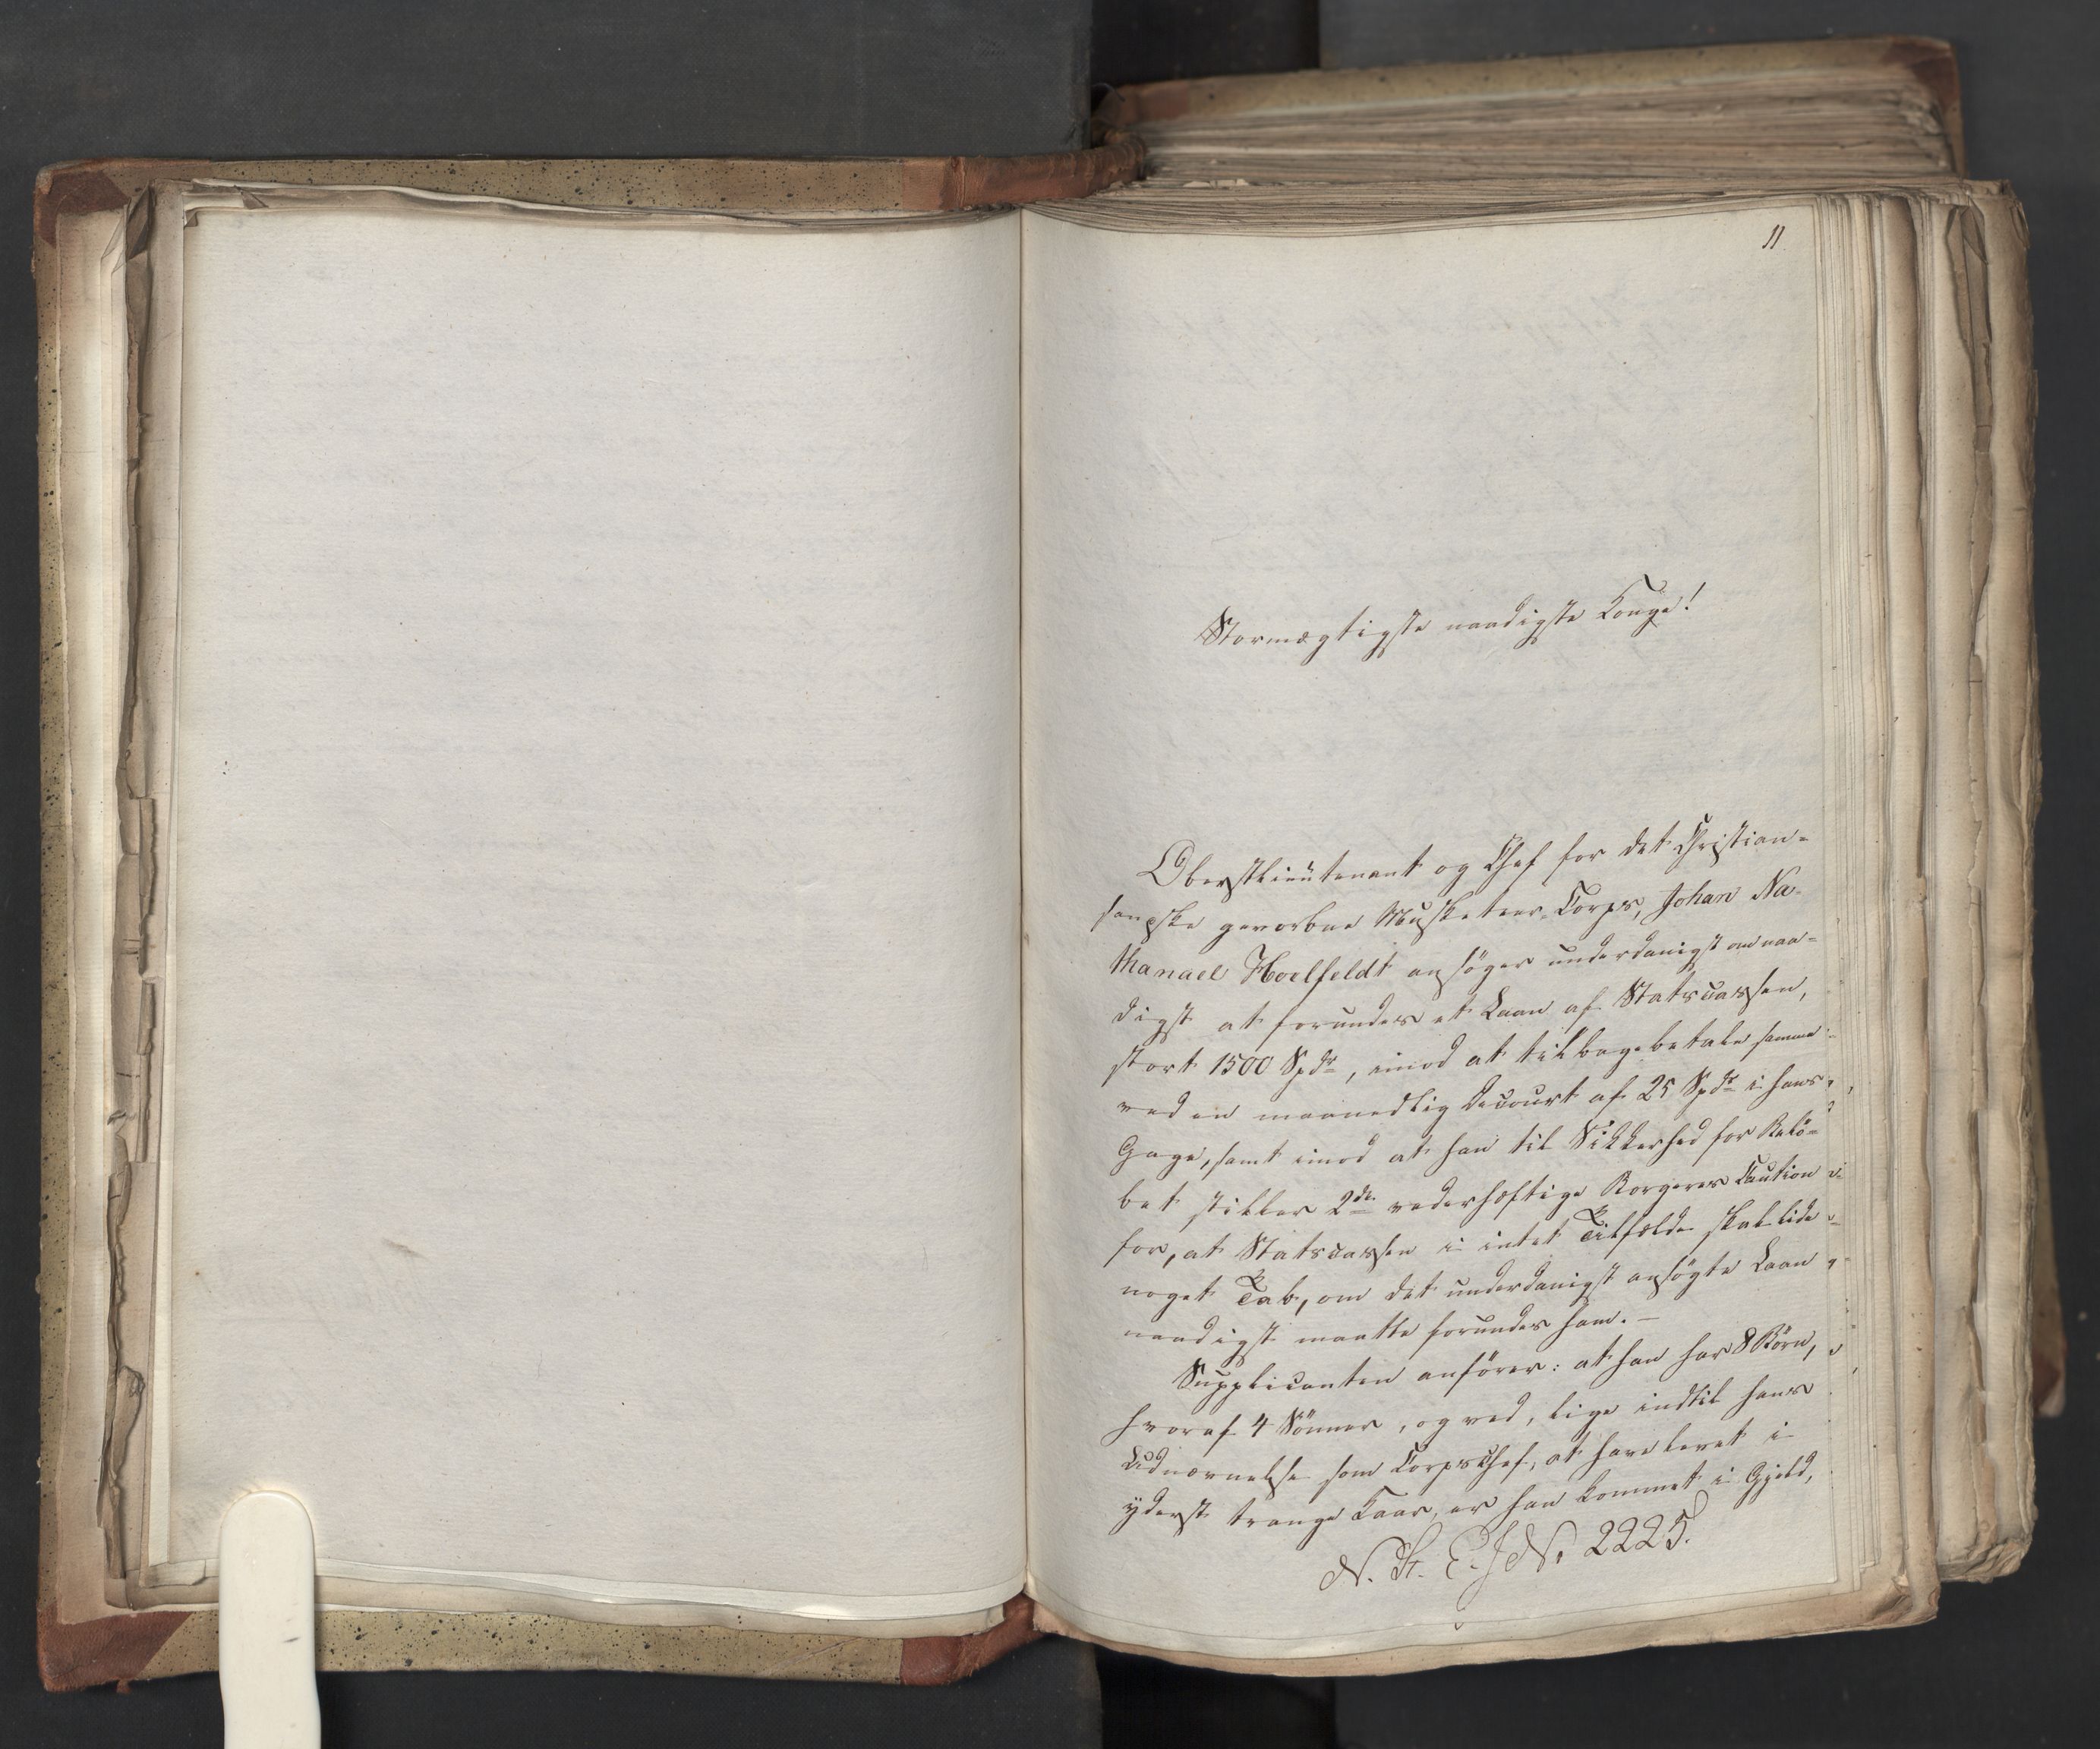 11.
Stormægtigste naadigste Konge!
Oberstlieutenant og Chef for det Christian-
sanske gevorbne Musketeer-Corps, Johan Na-
thanael Hoelfeldt ansøger underdanigst om naa-
digst at forundes et Laan af Statscassen,
stort 1500 Spdr, imod at tilbagebetale samme
ved en maanedlig Decourt af 25 Spdr i hans
Gage, samt imod at han til Sikkerhed for Belö-
bet stiller 2de vederhæftige Borgeres Caution
for, at Statscassen i intet Tilfælde skal lide
noget Tab, om det underdanigst ansögte Laan
naadigst maatte forundes ham. —
Supplicanten anförer: at han har 8 Börn,
hvoraf 4 Sönner, og ved, lige indtil hans
Udnævnelse som Corpschef, at have levet i
yderst trange Kaar, er han kommet i Gjeld,
N. St. E. J. No 2225.